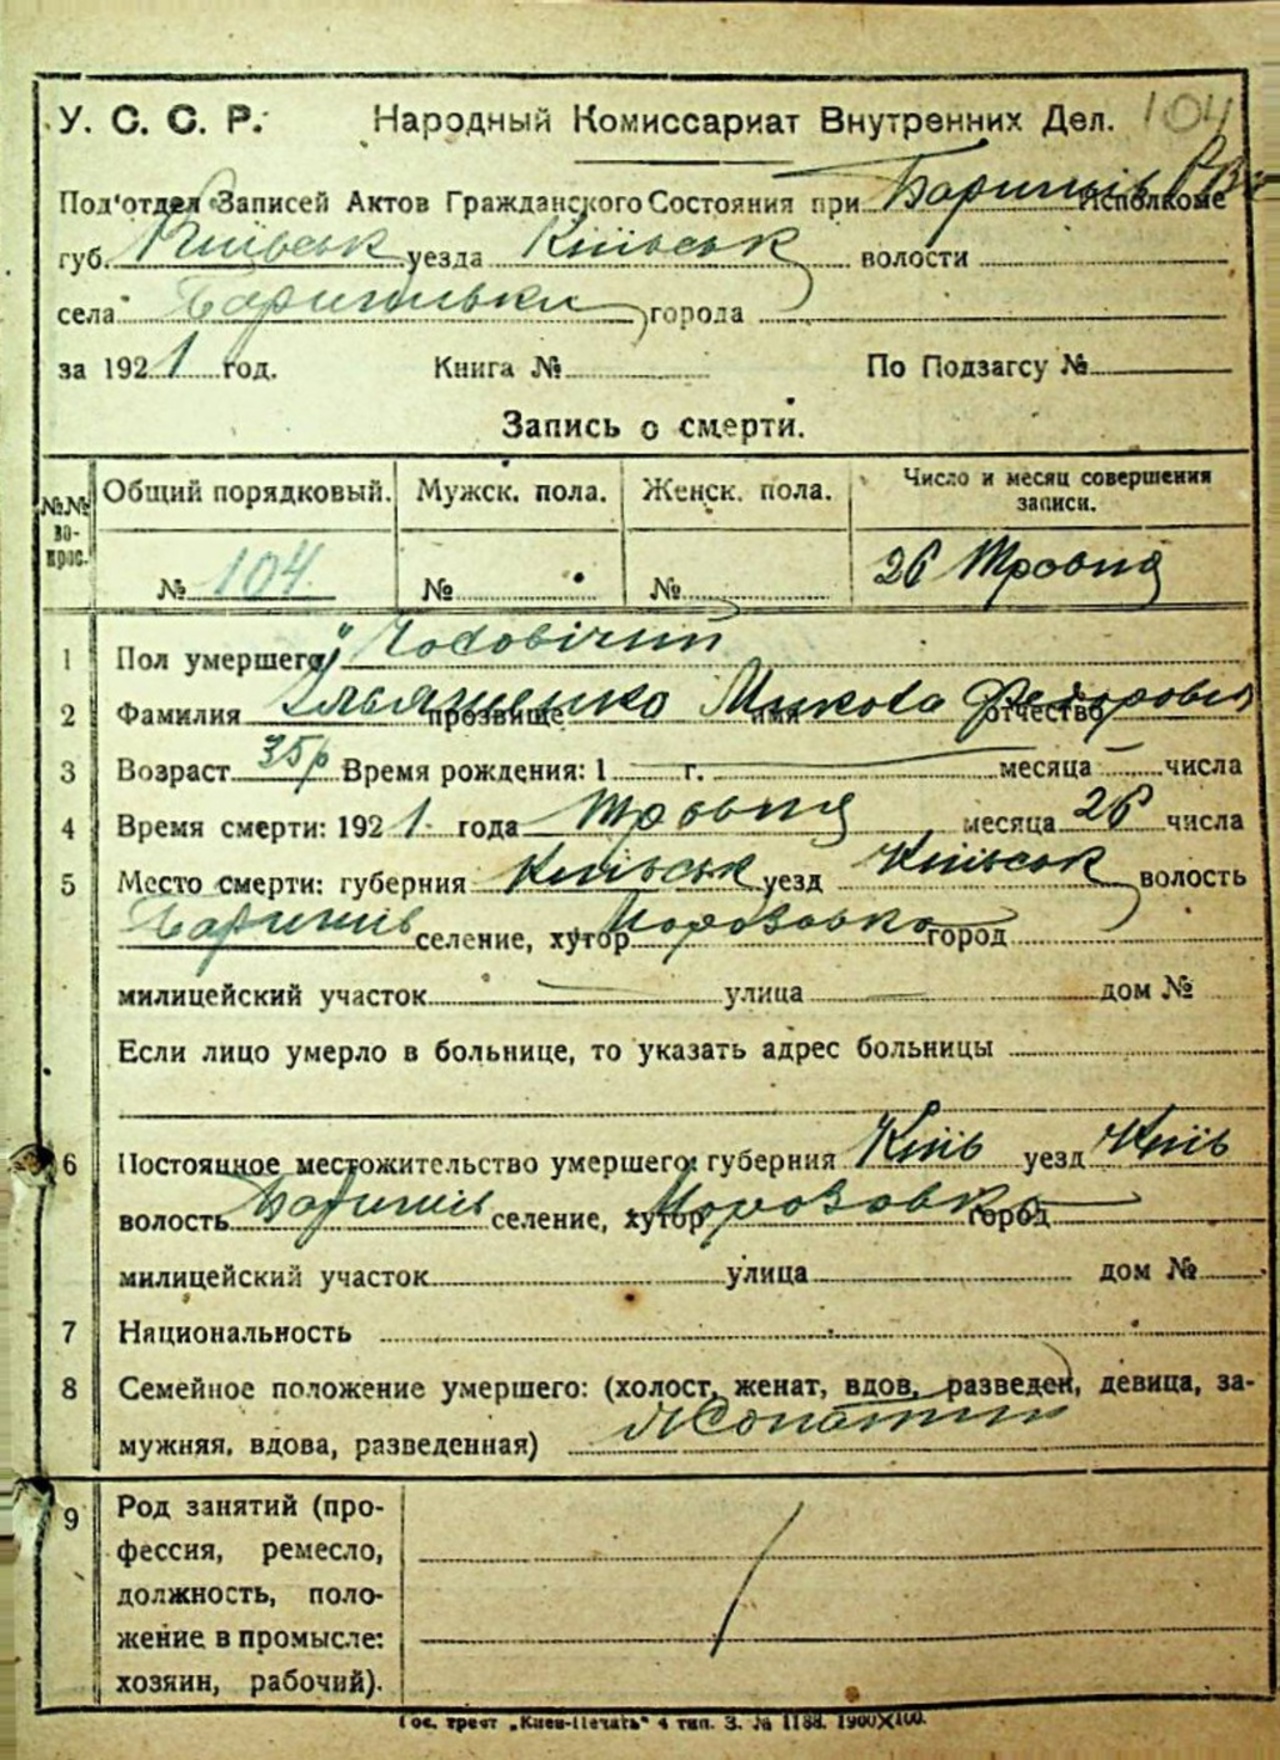 104
У. С. С. Р. Народный Комиссариат Внутренних Дел.
Под'отдел Записей Актов Гражданского Состояния при Баришів Исполкоме
губ. Київськ уезда Київськ волости
села Баришівки города
за 1921 год. Книга № По Подзагсу №
Запись о смерти.
№№ во-прос. Общий порядковый. Мужск. пола. Женск. пола. Число и месяц совершения записи.
№ 104 № № 26 Травня
1 Пол умершего Чоловічий
2 Фамилия прозвище Ільяшенко имя Микола отчество Федорович
3 Возраст 35 р Время рождения: 1 г. месяца числа
4 Время смерти: 1921 года Травня месяца 26 числа
5 Место смерти: губерния Київськ уезд Київськ волость
Баришів селение, хутор Морозовка город
милицейский участок улица дом №
Если лицо умерло в больнице, то указать адрес больницы
6 Постоянное местожительство умершего: губерния Київ уезд Київ
волость Баришів селение, хутор Морозовка город
милицейский участок улица дом №
7 Национальность
8 Семейное положение умершего: (холост, женат, вдов, разведен, девица, за-
мужняя, вдова, разведенная) Жонатий
9 Род занятий (про-
фессия, ремесло,
должность, поло-
жение в промысле:
хозяин, рабочий).
Гос. трест „Киев-Печать" 4 тип. З. № 1188. 1900✕100.